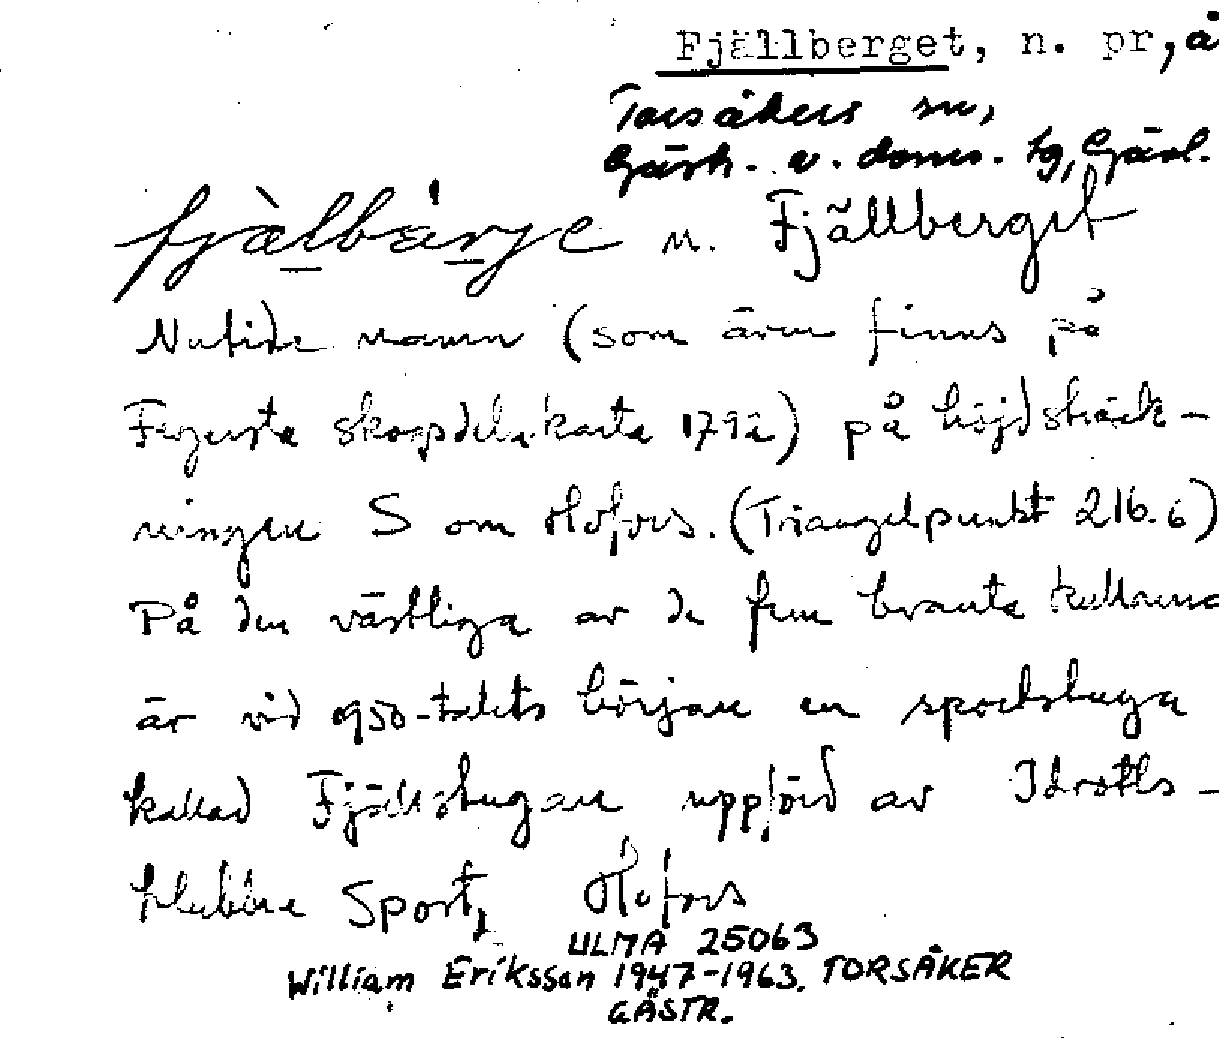 Fjällberget, n. pr, å
Torsåkers sn,
Gästr. ö. doms. tg, Gävl.
fjàlbárje n. Fjällberget
Nutida namn (som även finns på
Fagersta skogsdelskarta 1792) på höjdsträck-
ningen S om Hofors. (Triangelpunkt 216.6)
På den västliga av de fem branta kullarna
är vid 1950-talets början en sportstuga
kallad Fjällstugan uppförd av Idrotts-
klubben Sport, Hofors
ULMA 25063
William Eriksson 1947-1963. TORSÅKER
GÄSTR.